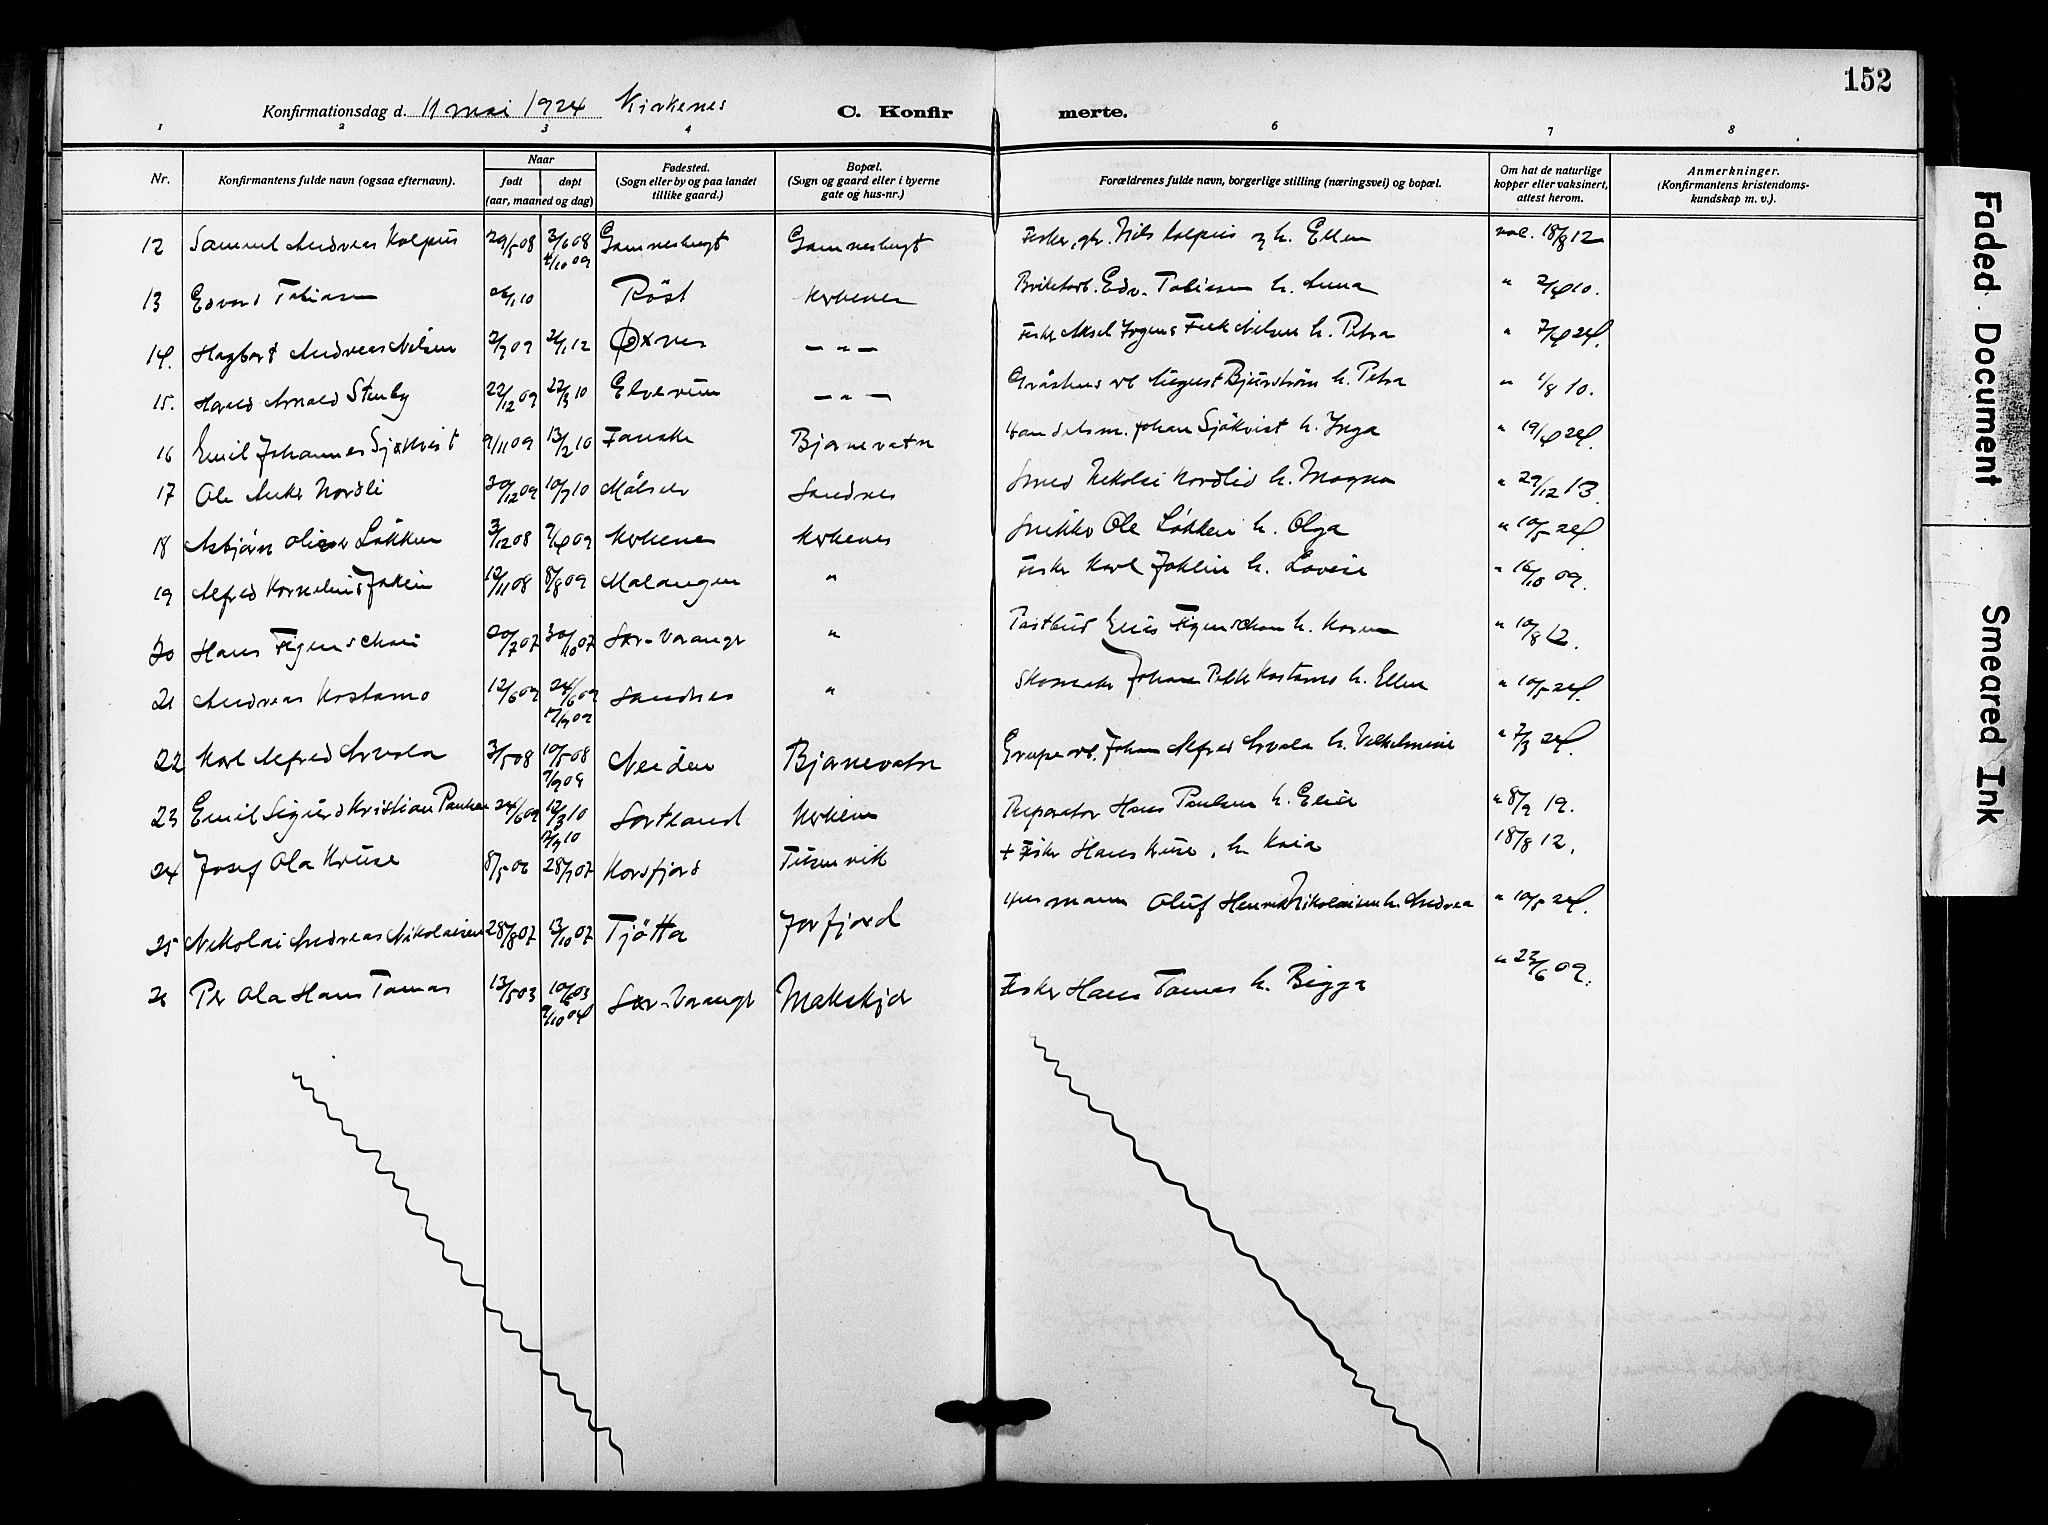 152
Konfirmationsdag d. 11 mai 1924 Kirkenes C. Konfirmerte.
1 2 3 4 6 7 8
Nr. Konfirmantens fulde navn (ogsaa efternavn). Naar født døpt (aar, maaned og dag) Fødested. (Sogn eller by og paa landet tillike gaard.) Bopæl. (Sogn og gaard eller i byerne gate og hus-nr.) Forældrenes fulde navn, borgerlige stilling (næringsvei) og bopæl. Om hat de naturlige kopper eller vaksinert, attest herom. Anmerkninger. (Konfirmantens kristendoms-kundskap m. v.).
12 Samuel Andreas Kolpus 29/5 08 3/6 08 Gamnesbugt Gamnesbugt Fisker, gbr. Nils Kolpus og h. Ellen vac. 18/8 12
4/10 09
13 Edvard Tobiasen 26/1 10 Röst Kirkenes Briketarb. Edv. Tobiasen h. Anna " 2/4 10.
14. Hagbart Andreas Nilsen 2/9 09 21/1 12 Øxnes — " — Fisker Aksel Nilsen h. Petra " 7/4 24.
15. Harald Arnold Stenby 22/12 09 27/3 10 Elverum — " — August Bjurström h. Petra " 1/8 10.
16 Emil Johannes Sjøkvist 9/11 09 13/2 10 Fauske Bjørnevatn Handelsm. Johan Sjökvist h. Inga " 19/4 24.
17 Ole Anker Nordli 30/12 09 10/7 10 Målselv Sandnes Smed Nikolai Nordlid h. Magna " 29/12 13.
18 Asbjörn Oliver Løkken 3/12 08 9/4 09 Kirkenes Kirkenes Snikker Ole Løkken h. Olga " 10/5 24.
19 Alfred Kornelius Joklin 12/11 08 8/8 09 Malangen " Fisker Karl Joklin h. Lovise " 16/10 09.
20 Hans Figenschau 20/7 07 30/10 07 Sør-Varanger " Postbud Elias Figenschau h. Karen " 10/8 12.
21 Andreas Kostamo 12/6 09 24/6 09 Sandnes " Skomaker Johan Petter Kostamo h. Ellen " 10/5 24.
17/9 09
22 Karl Alfred Arvola 3/5 08 10/5 08 Neiden Bjørnevatn Grubearb. Johan Alfred Arvola h. Vilhelmine " 7/3 24.
7/9 09
23 Emil Sigurd Kristian Paulsen 24/6 09 12/3 10 Sortland Kirkenes Reparatør Hans Paulsen h. Elise " 8/9 19.
7/9 10
24 Josef Ola Kruse 8/5 06 28/7 07 Korsfjord + Fisker Hans Kruse, h. Kaia 18/8 12.
25 Nikolai Andreas Nikolaisen 28/8 07 13/10 07 Tjøtta Jarfjord Husmann Oluf Henrik Nikolaisen h. Andrea " 10/5 24.
26 Per Ola Hans Tomas 13/5 03 10/6 03 Sør-Varanger Fisker Hans Tomas h. Bigga " 23/6 09.
9/10 04
Faded Document
Smeared Ink